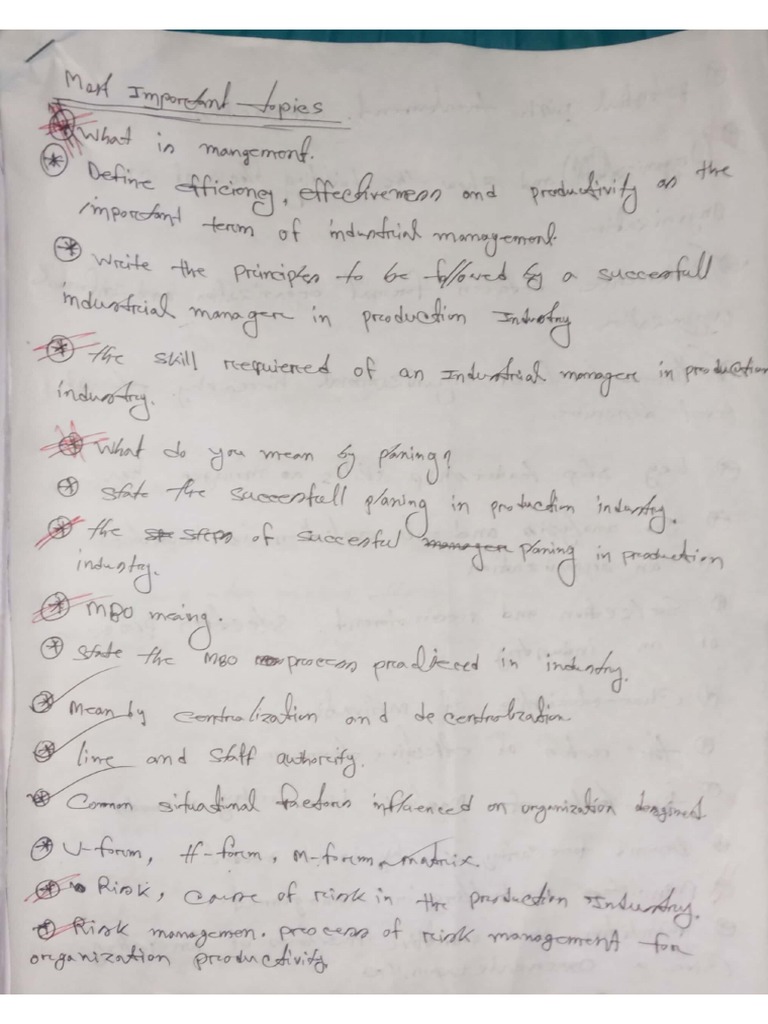 Most Important topics
What is mangement.
Define efficiency, effectiveness and productivity as the
important term of industrial management.
Write the principles to be followed by a succesfull
industrial manager in production Industry
the skill required of an Industrial manager in production
industry.
What do you mean by planing?
state the successfull planing in production industry.
the steps of succesful planing in production
industry.
MBO meaing.
state the MBO process practiced in industry.
Mean by centralization and decentralization.
line and staff authority.
Common situational factors influenced on organization
U-form, H-form, M-form, matrix.
Risk, cause of risk in the production Industry.
Risk managemen. process of risk management for
organization productivity.